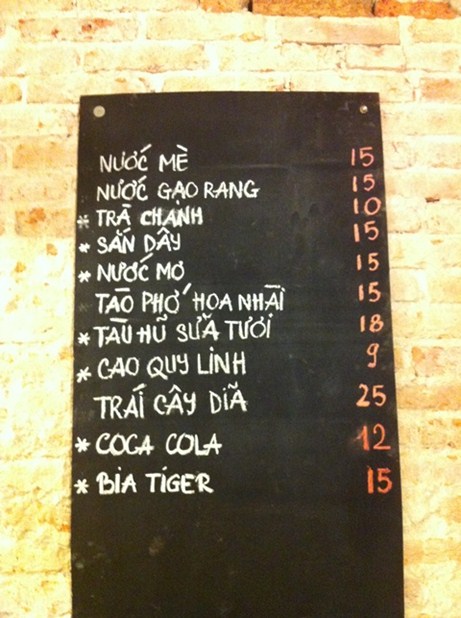 NƯỚC MÈ 15
NƯỚC GẠO RANG 15
* TRÀ CHANH 10
* SẮN DÂY 15
* NƯỚC MƠ 15
TÀO PHỚ HOA NHÀI 15
* TÀU HŨ SỮA TƯƠI 18
* CAO QUY LINH 9
TRÁI CÂY DIÃ 25
* COCA COLA 12
* BIA TIGER 15